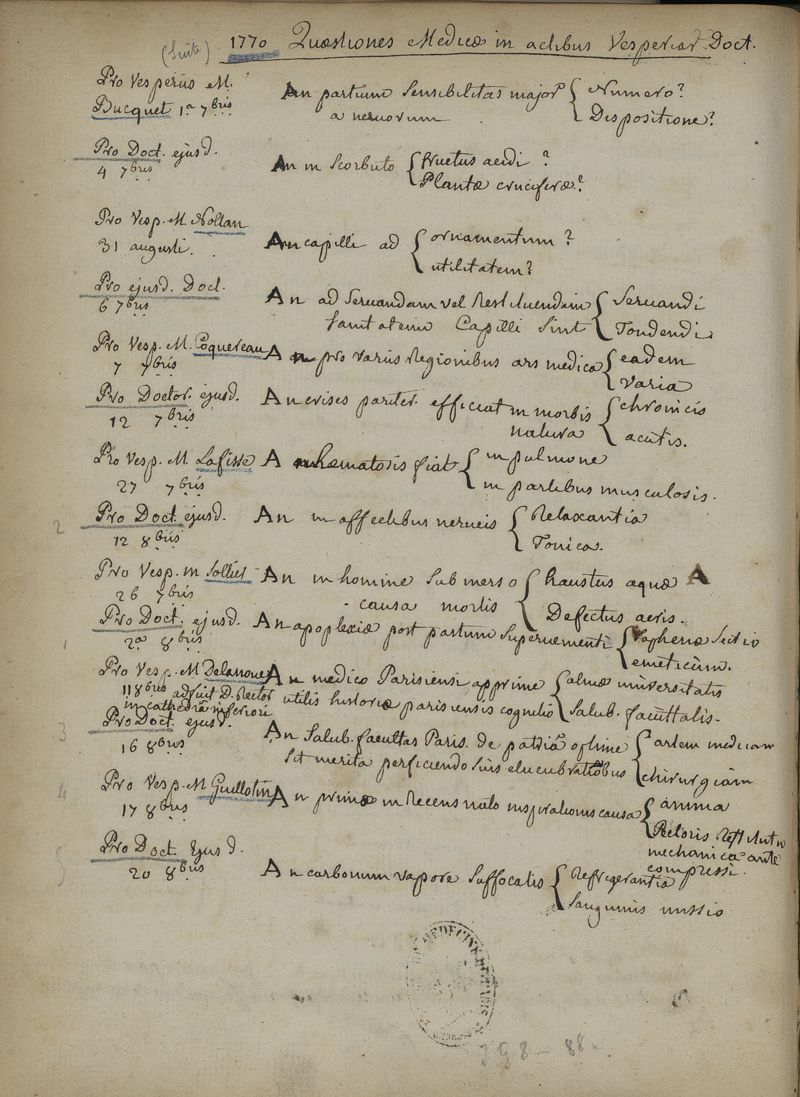 (Suite) 1770 Quæstiones Medicæ in actibus Vesperiar. Doct.
Pro Vesperiis M.
Bucquet 1ª 7bris
An partium Sensibilitas major { Numero?
a nervorum { Dispositione?
Pro Doct. ejusd.
4 7bris
An in Scorbuto { fructus acidi?
Plantæ cruciferæ?
Pro Vesp. M. Nollan
31 augusti.
An capilli ad { ornamentum?
utilitatem?
Pro ejusd. Doct.
6 7bris
An ad Servandam vel Restituendam { Servandi
Sanitatem Capilli Sint { Tondendi
Pro Vesp. M. Coquereau
7 7bris
An pro variis Regionibus ars medica { eadem
varia
Pro Doctor. ejusd.
12 7bris
An crises pariter efficiat in morbis { chronicis
natura { acutis.
Pro Vesp. M Lafisse
27 7bris
An hæmatosis fiat { in pulmone
in partibus musculosis.
2 Pro Doct. ejusd.
12 8bris
An in affectibus nerveis { Relaxantia
Tonica.
Pro Vesp. M Sollier
26 7bris
An in homine Submerso { haustus aquæ A
causa mortis { Defectus aeris.
1 Pro Doct. ejusd.
2ª 8bris
An apoplexiæ post partum Supervenienti { Saphenæ Sectio
emeticum.
Pro Vesp. M Delanoue
11 8bris adfuit D. Rector
in cathedra inferiori
An medico Parisiensi apprime { almæ universitatis
utilis historiæ parisiensis cognitio { Salub. facultatis.
3 Pro Doct ejusd.
16 8bris
An Salub. facultas Paris. de patriâ optime { artem medicam
Sit merita perficiendo Suis elucubrationibus { chirurgiam
4 Pro Vesp. M Guillotin
17 8bris
An primæ in Recens nato inspirationis causa { anima
Pectoris Restitutio
mechanica ante
compressi.
5 Pro Doct. Ejusd.
20 8bris
An carbonum vapore Suffocatis { Refrigerantia
Sanguinis missio